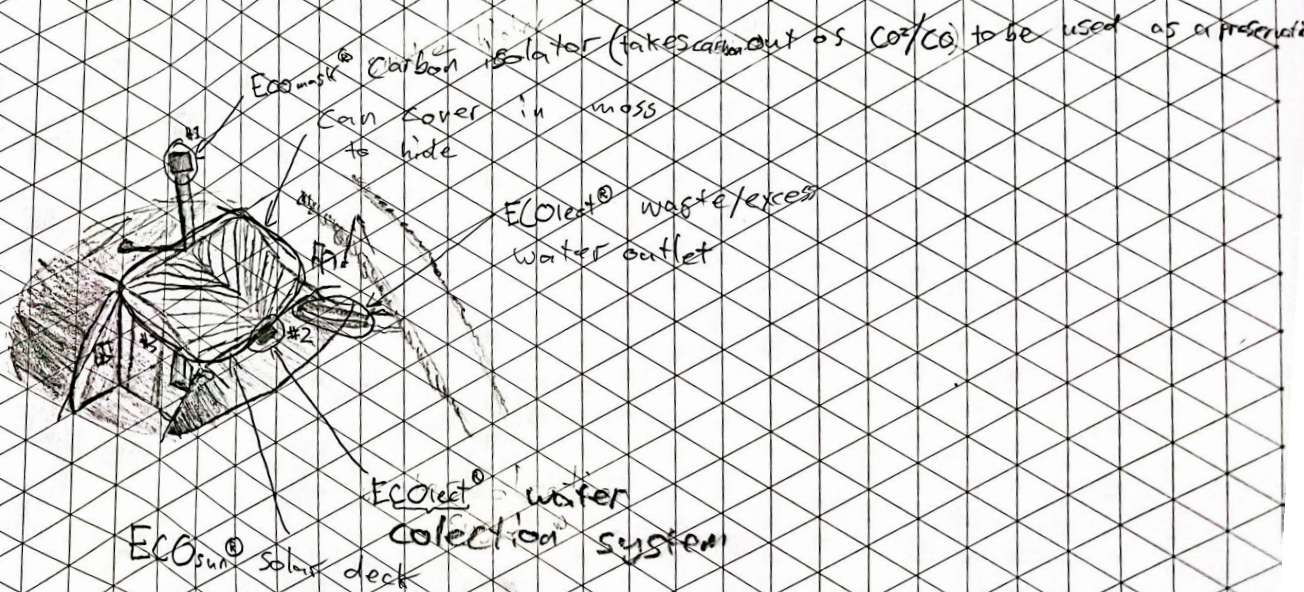 ECOmask® Carbon isolator (takes carbon out os CO²/CO) to be used as a
can cover in moss
to hide
#1
ECOlect® waste/excess
water outlet
#2
ECOlect® water
colection system
ECOsun® solar deck